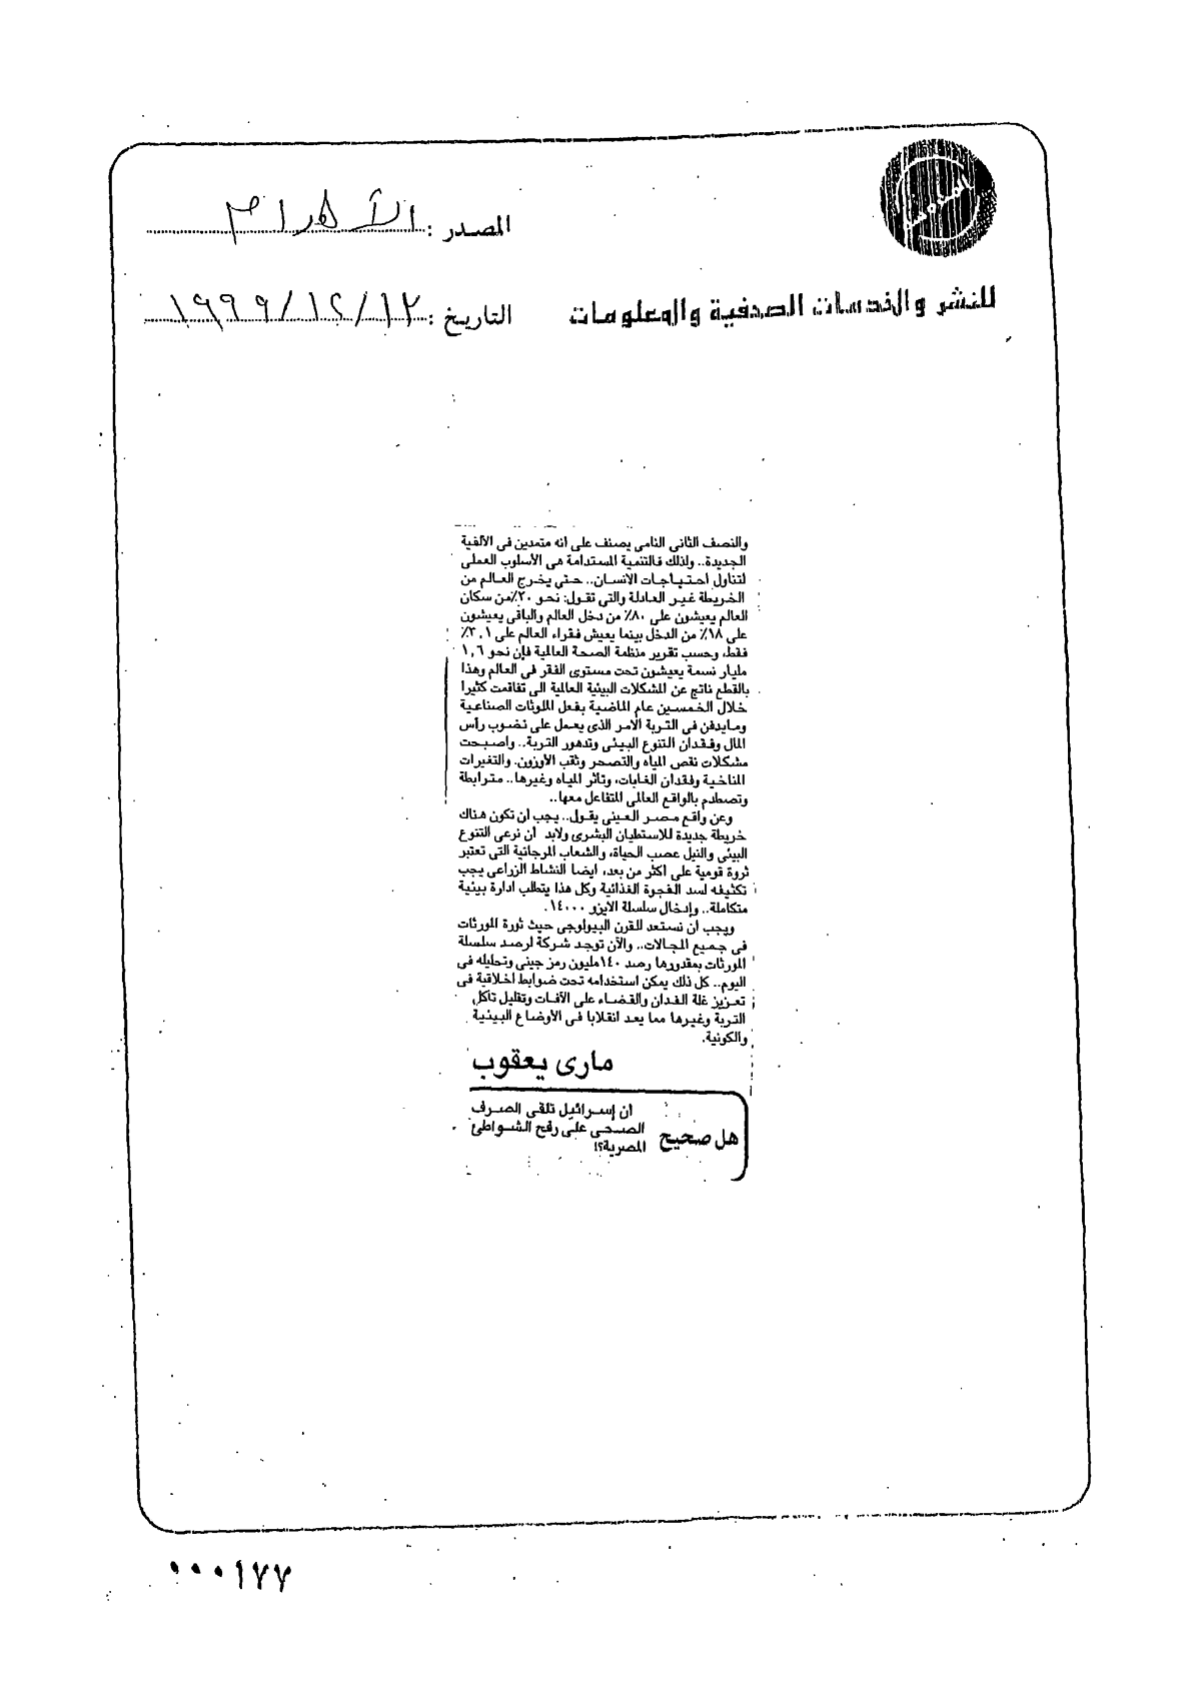 المصدر : الأهرام
للنشر والخدمات الصحفية والمعلومات
التاريخ : ١٢/١٢/١٩٩٩
والنصف الثانى النامى يصنف على انه متمدين فى الألفية
الجديدة.. ولذلك فالتنمية المستدامة هى الأسلوب العملى
لتناول احتياجات الانسان.. حتى يخرج العالم من
الخريطة غير العادلة والتى تقول: نحو ٢٠٪من سكان
العالم يعيشون على ٨٠٪ من دخل العالم والباقى يعيشون
على ١٨٪ من الدخل بينما يعيش فقراء العالم على ٣,١٪
فقط، وحسب تقرير منظمة الصحة العالمية فإن نحو ١,٦
مليار نسمة يعيشون تحت مستوى الفقر فى العالم وهذا
بالقطع ناتج عن المشكلات البيئية العالمية التى تفاقمت كثيرا
خلال الخمسين عام الماضية بفعل الملوثات الصناعية
ومايدفن فى التربة الامر الذى يعمل على نضوب رأس
المال وفقدان التنوع البيئى وتدهور التربة.. واصبحت
مشكلات نقص المياه والتصحر وثقب الأوزون. والتغيرات
المناخية وفقدان الغابات، وتأثر المياه وغيرها.. مترابطة
وتصطدم بالواقع العالمى المتفاعل معها..
وعن واقع مصر العينى يقول.. يجب أن تكون هناك
خريطة جديدة للاستطيان البشرى ولابد أن نرعى التنوع
البيئى والنيل عصب الحياة، والشعاب المرجانية التى تعتبر
ثروة قومية على اكثر من بعد، ايضا النشاط الزراعى يجب
تكثيفه لسد الفجوة الغذائية وكل هذا يتطلب ادارة بيئية
متكاملة.. وإدخال سلسلة الايزو ١٤٠٠٠.
ويجب أن نستعد للقرن البيولوجى حيث ثورة المورثات
فى جميع المجالات.. والآن توجد شركة لرصد سلسلة
المورثات بمقدورها رصد ١٤٠مليون رمز جينى وتحليله فى
اليوم.. كل ذلك يمكن استخدامه تحت ضوابط اخلاقية فى
تعزيز غلة الفدان والقضاء على الآفات وتقليل تآكل
التربة وغيرها مما يعد انقلابا فى الأوضاع البيئية
والكونية.
مارى يعقوب
هل صحيح
ان إسرائيل تلقى الصرف
الصحى على رفح الشواطئ
المصرية؟!
٠٠٠١٧٧